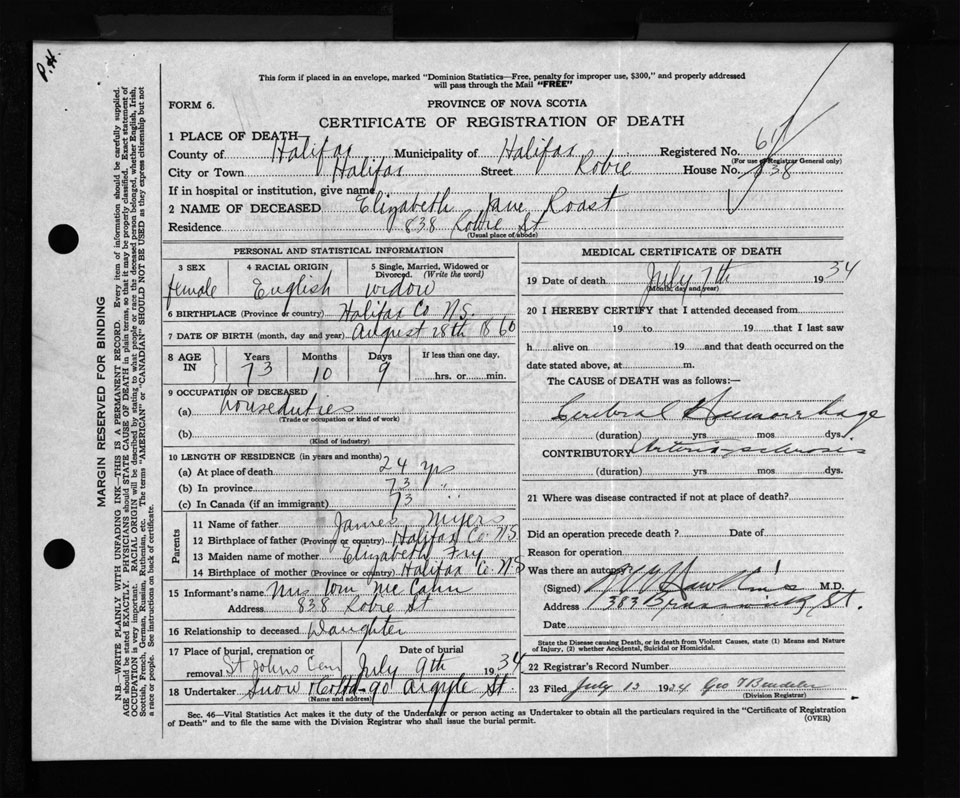 P.H.
This form if placed in an envelope, marked "Dominion Statistics—Free, penalty for improper use, $300," and properly addressed
will pass through the Mail "FREE"
FORM 6.
PROVINCE OF NOVA SCOTIA
CERTIFICATE OF REGISTRATION OF DEATH
1 PLACE OF DEATH—
County of Halifax Municipality of Halifax Registered No.
(For use of Registrar General only)
City or Town Halifax Street Robie House No. 838
If in hospital or institution, give name
2 NAME OF DECEASED Elizabeth Jane Roast
Residence 838 Robie St
(Usual place of abode)
MARGIN RESERVED FOR BINDING
N.B.—WRITE PLAINLY WITH UNFADING INK—THIS IS A PERMANENT RECORD. Every item of information should be carefully supplied.
AGE should be stated EXACTLY. PHYSICIANS should STATE CAUSE OF DEATH in plain terms, so that it may be properly classified. Exact statement of
OCCUPATION is very important. RACIAL ORIGIN will be described by stating to what people or race the deceased person belonged, whether English, Irish,
Scottish, French, German, Russian, Ruthenian, etc. The terms "AMERICAN" or "CANADIAN" SHOULD NOT BE USED as they express citizenship but not
a race or people. See instructions on back of certificate.
PERSONAL AND STATISTICAL INFORMATION
3 SEX
female
4 RACIAL ORIGIN
English
5 Single, Married, Widowed or
Divorced. (Write the word)
widow
6 BIRTHPLACE (Province or country) Halifax Co N.S.
7 DATE OF BIRTH (month, day and year) August 28th 1860
8 AGE IN
Years
73
Months
10
Days
9
If less than one day,
hrs. or min.
9 OCCUPATION OF DECEASED
(a) house duties
(Trade or occupation or kind of work)
(b)
(Kind of industry)
10 LENGTH OF RESIDENCE (in years and months)
(a) At place of death 24 yrs
(b) In province 73 "
(c) In Canada (if an immigrant) 73 "
Parents
11 Name of father James Myers
12 Birthplace of father (Province or country) Halifax Co. N.S.
13 Maiden name of mother Elizabeth Fry
14 Birthplace of mother (Province or country) Halifax Co. N.S
15 Informant's name Mrs Wm McCann
Address 838 Robie St
16 Relationship to deceased Daughter
17 Place of burial, cremation or
removal St Johns Cem
Date of burial
July 9th 1934
18 Undertaker Snow & Co Ltd - 90 Argyle St.
(Name and address)
MEDICAL CERTIFICATE OF DEATH
19 Date of death July 7th 1934
(Month, day and year)
20 I HEREBY CERTIFY that I attended deceased from
19 to 19 that I last saw
h alive on 19 and that death occurred on the
date stated above, at m.
The CAUSE of DEATH was as follows:—
Cerebral Haemorrhage
(duration) yrs mos dys.
CONTRIBUTORY Arterio-sclerosis
(duration) yrs. mos. dys.
21 Where was disease contracted if not at place of death?
Did an operation precede death? Date of
Reason for operation
Was there an autopsy?
(Signed) Hawkins M.D.
Address 383 Brunswick St.
Date
State the Disease causing Death, or in death from Violent Causes, state (1) Means and Nature
of Injury, (2) whether Accidental, Suicidal or Homicidal.
22 Registrar's Record Number
23 Filed July 13 1934 Geo
(Division Registrar)
Sec. 46—Vital Statistics Act makes it the duty of the Undertaker or person acting as Undertaker to obtain all the particulars required in the "Certificate of Registration
of Death" and to file the same with the Division Registrar who shall issue the burial permit.
(OVER)